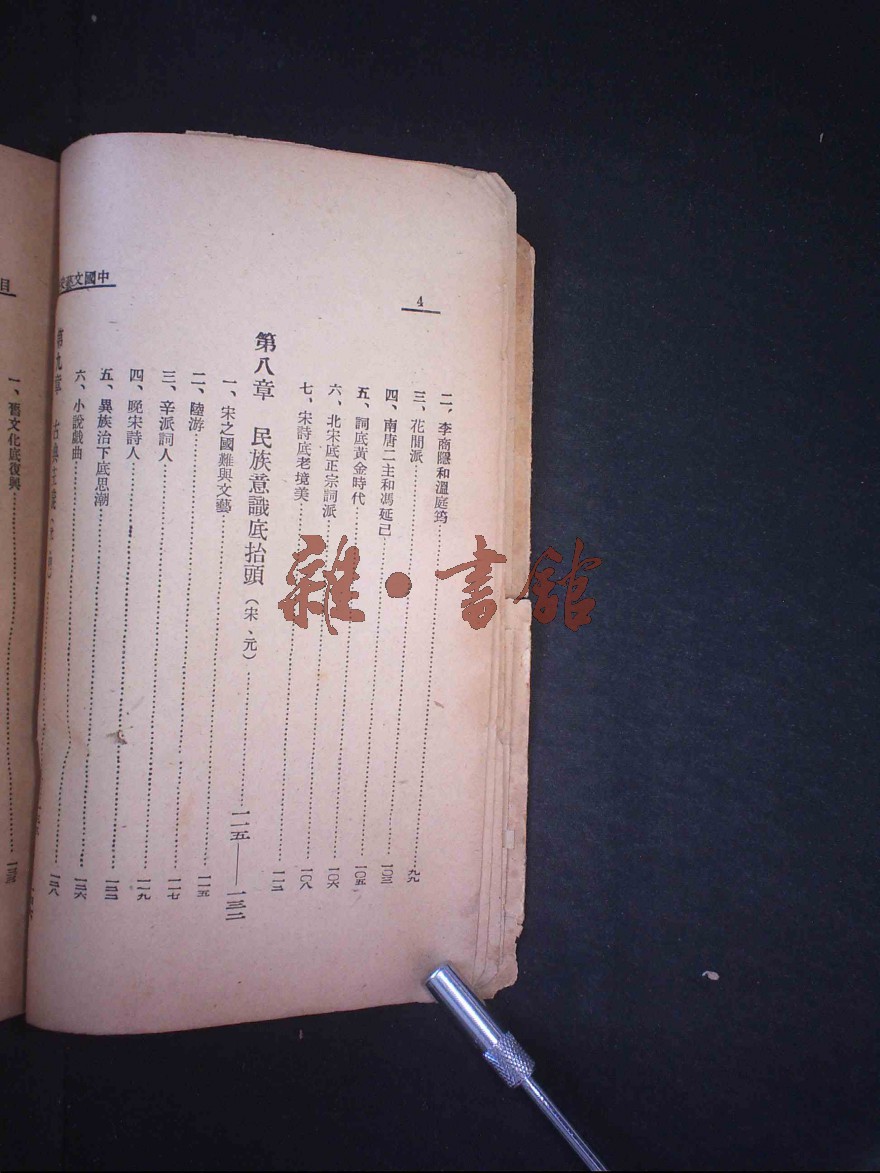 4
二、李商隱和溫庭筠……九九
三、花間派……一〇三
四、南唐二主和馮延己……一〇五
五、詞底黃金時代……一〇六
六、北宋底正宗詞派……一〇八
七、宋詩底老境美……一一二
第八章 民族意識底抬頭(宋、元)……一一五——一三二
一、宋之國難與文藝……一一五
二、陸游……一一七
三、辛派詞人……一一九
四、晚宋詩人……一二二
五、異族治下底思潮……一二六
六、小說戲曲……一二八
中國文藝
第九章 古典主義
目
一、舊文化底復興
雜·書館